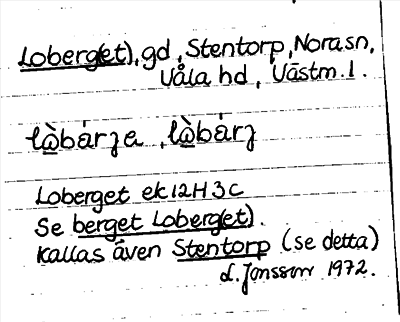 Loberg(et), gd, Stentorp, Nora sn,
Våla hd, Västm. l.
lòbárʒa, lòbárʒ
Loberget ek 12H 3c
Se berget Loberg(et).
Kallas även Stentorp (se detta)
L. Jonsson 1972.